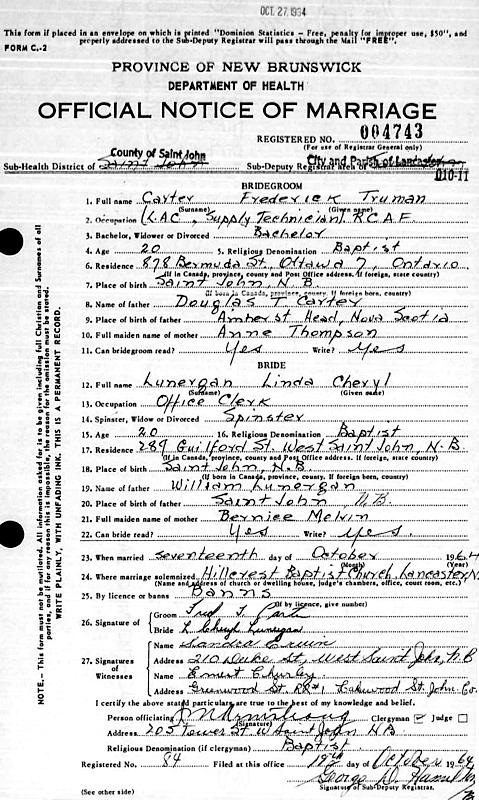 OCT 27 1964
This form if placed in an envelope on which is printed "Dominion Statistics - Free, penalty for improper use, $50", and
properly addressed to the Sub-Deputy Registrar will pass through the Mail "FREE".
FORM C.-2
PROVINCE OF NEW BRUNSWICK
DEPARTMENT OF HEALTH
OFFICIAL NOTICE OF MARRIAGE
REGISTERED NO. 004743
(For use of Registrar General only)
County of Saint John City and Parish of Lancaster
Sub-Health District of Saint John Sub-Deputy Registrar
D10-11
BRIDEGROOM
1. Full name Carter Frederick Truman
(Surname) (Given name)
2. Occupation (LAC, Supply Technician) R.C.A.F.
3. Bachelor, Widower or Divorced Bachelor
4. Age 20 5. Religious Denomination Baptist
6. Residence 898 Bermuda St., Ottawa 7, Ontario
(If in Canada, province, county and Post Office address. If foreign, state country)
7. Place of birth Saint John, N.B.
(If born in Canada, province. If foreign born, country)
8. Name of father Douglas T. Carter
9. Place of birth of father Amherst Head, Nova Scotia
10. Full maiden name of mother Anne Thompson
11. Can bridegroom read? Yes Write? Yes
BRIDE
12. Full name Lunergan Linda Cheryl
(Surname) (Given name)
13. Occupation Office Clerk
14. Spinster, Widow or Divorced Spinster
15. Age 20 16. Religious Denomination Baptist
17. Residence 289 Guilford St. West Saint John, N.B.
(If in Canada, province, county and Post Office address. If foreign, state country)
18. Place of birth Saint John, N.B.
(If born in Canada, province, county. If foreign born, country)
19. Name of father William Lunergan
20. Place of birth of father Saint John N.B.
21. Full maiden name of mother Bernice Melvin
22. Can bride read? Yes Write? Yes.
23. When married seventeenth day of October 1964
(Month) (Year)
24. Where marriage solemnized Hillcrest Baptist Church, Lancaster, N.
(Name and address of church or dwelling house, judge's chambers, office, court room, etc.)
25. By licence or banns Banns
(If by licence, give number)
26. Signature of
Groom Fred T. Carter
Bride L. Cheryl Lunergan
27. Signatures of Witnesses
Name Sandra
Address 210 Duke St, West Saint John, N.B
Name Ernest
Address Greenwood St. RR#1, Lakewood St. John Co.
I certify the above stated particulars are true to the best of my knowledge and belief.
Person officiating Armstrong Clergyman ✓ Judge
(Signature)
Address 205 Tower St. W Saint John N.B.
Religious Denomination (if clergyman) Baptist
Registered No. 84 Filed at this office 19th day of October 1964
George D.
Signature of Sub-Deputy Registrar.
(See other side)
NOTE.- This form must not be mutilated. All information asked for is to be given including full Christian and Surnames of all
parties, and if for any reason this is impossible, the reason for the omission must be stated.
WRITE PLAINLY, WITH UNFADING INK. THIS IS A PERMANENT RECORD.